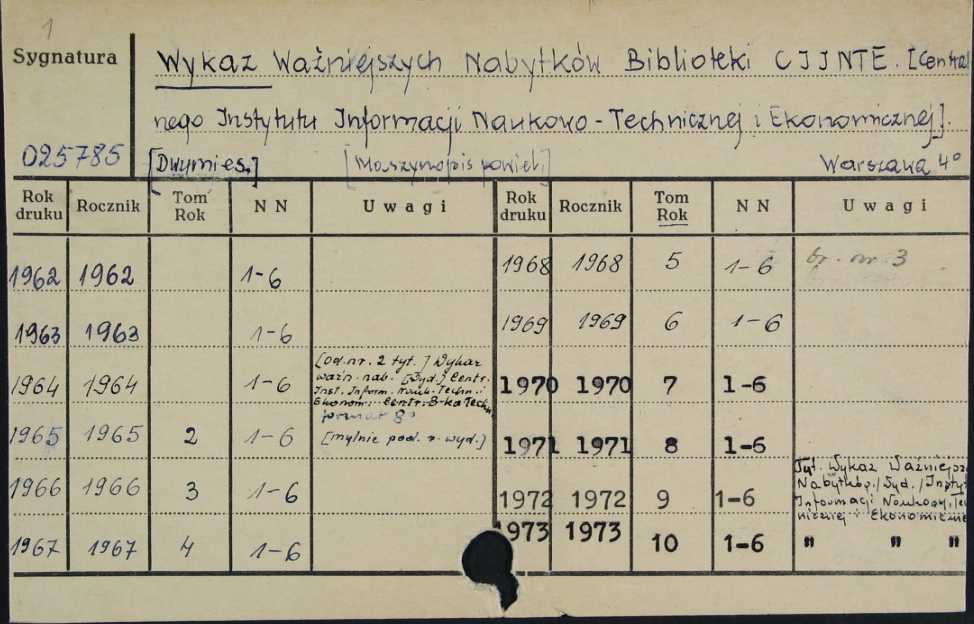 1
Sygnatura
Wykaz Ważniejszych Nabytków Biblioteki CIINTE. [Central
nego Instytutu Informacji Naukowo-Technicznej i Ekonomicznej].
025785 [Dwumies.] [Maszynopis powiel.] Warszawa 4°
Rok druku Rocznik Tom Rok NN Uwagi Rok druku Rocznik Tom Rok NN Uwagi
1962 1962 1-6 1968 1968 5 1-6 br. nr. 3
1963 1963 1-6 1969 1969 6 1-6
1964 1964 1-6 [Od nr. 2 tyt.] Wykaz
ważn. nab. [Wyd.] Centr.
Inst. Inform. Nauk. Techn. i
Ekonom. Centr. B-ka Techn.
format 8°
1970 1970 7 1-6
1965 1965 2 1-6 [mylnie pod. r. wyd.] 1971 1971 8 1-6
1966 1966 3 1-6 1972 1972 9 1-6 Tyt. Wykaz Ważniejsz
Nabytków/Wyd./Instyt
Informacji Naukowo, Tec
nicznej i Ekonomiczne
1967 1967 4 1-6 1973 1973 10 1-6 " " "